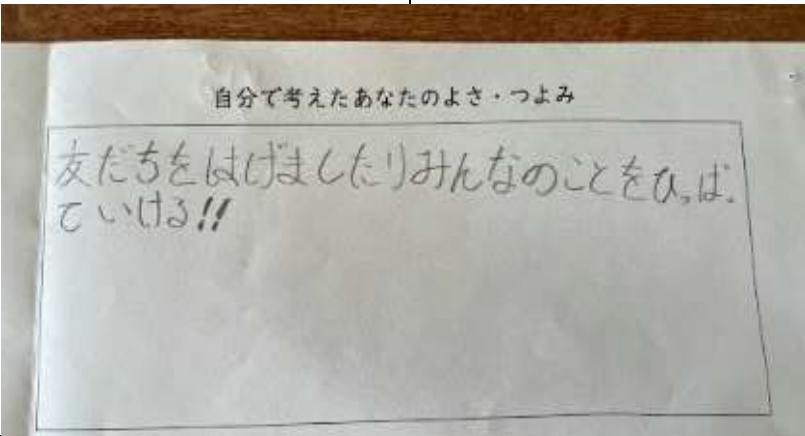 自分で考えたあなたのよさ・つよみ
友だちをはげましたりみんなのことをひっぱっ
ていける!!